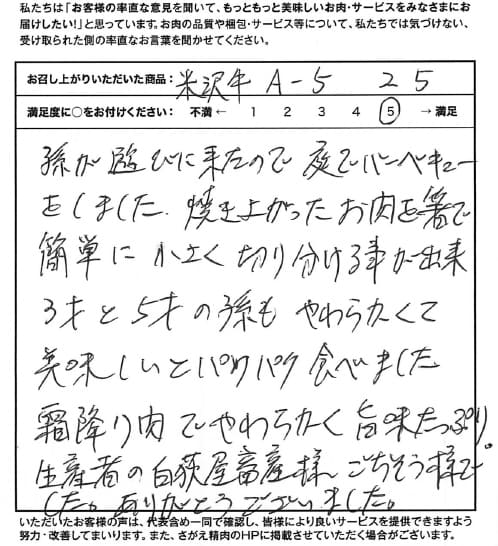 私たちは「お客様の率直な意見を聞いて、もっともっと美味しいお肉・サービスをみなさまにお
届けしたい!」と思っています。お肉の品質や梱包・サービス等について、私たちでは気づけない、
受け取られた側の率直なお言葉を聞かせてください。
お召し上がりいただいた商品: 米沢牛 A-5 25
満足度に○をお付けください: 不満 ← 1 2 3 4 5 → 満足
孫が遊びに来たので庭でバーベキュー
をしました。焼き上がったお肉を箸で
簡単に小さく切り分ける事が出来
3才と5才の孫もやわらかくて
美味しいとパクパク食べました
霜降り肉でやわらかく旨味たっぷり。
生産者の白荻屋畜産様ごちそう様で
した。ありがとうございました。
いただいたお客様の声は、代表含め一同で確認し、皆様により良いサービスを提供できますよう
努力・改善してまいります。また、さがえ精肉のHPに掲載させていただく場合がございます。